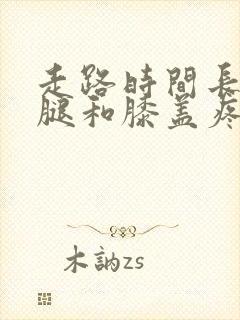 走路時間長
腿和膝盖疼
木訥zs